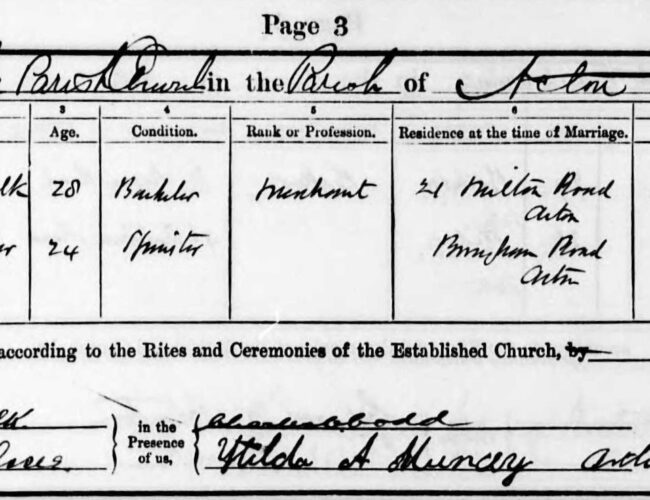 Page 3
Parish Church in the Parish of Acton
3 4 5 6
Age. Condition. Rank or Profession. Residence at the time of Marriage.
lk 28 Bachelor Merchant 21 Milton Road
Acton
er 24 Spinster Road
Acton
according to the Rites and Ceremonies of the Established Church, by
lk in the
Presence
of us,
Hilda A Muncey